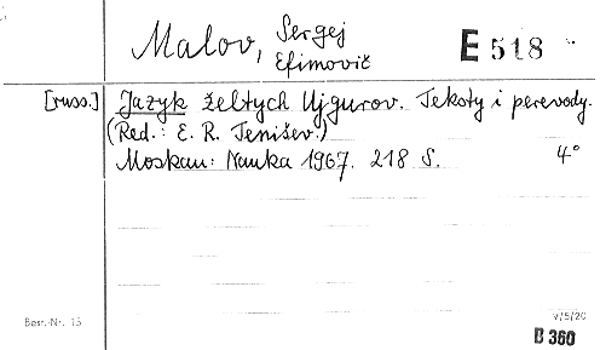 Malov, Sergej
Efimovič
E 518
[russ.] Jazyk želtych Ujgurov. Teksty i perevody.
(Red.: E. R. Tenišev.)
Moskau: Nauka 1967. 218 S. 4°
Best.-Nr. 15
V/5/20
B 360